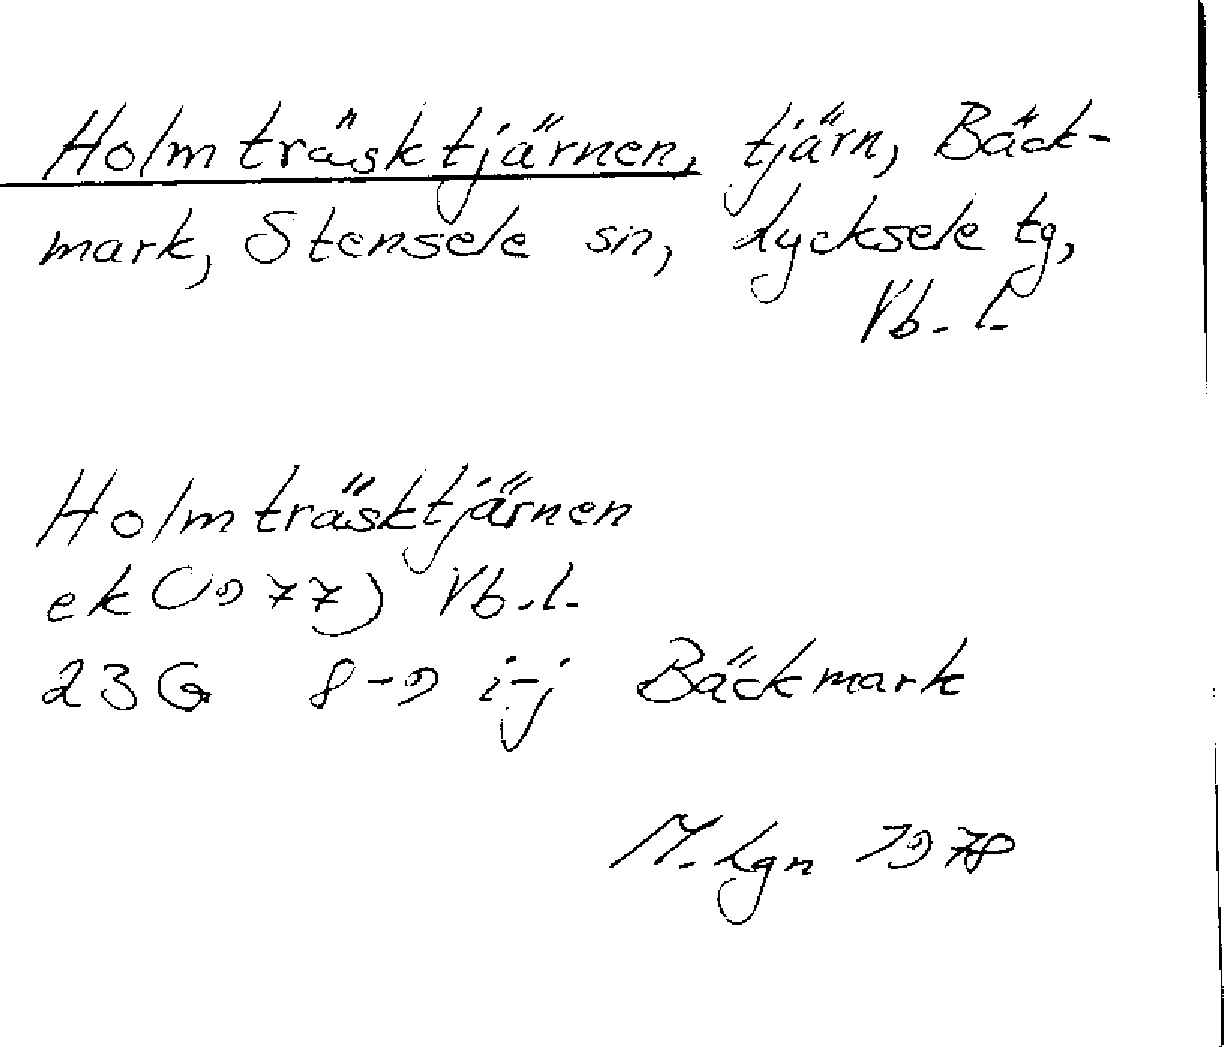 Holmträsktjärnen, tjärn, Bäck-
mark, Stensele sn, Lycksele tg,
Vb. l.
Holmträsktjärnen
ek (1977) Vb.l.
23G 8-9 i-j Bäckmark
M. Lgn 1978